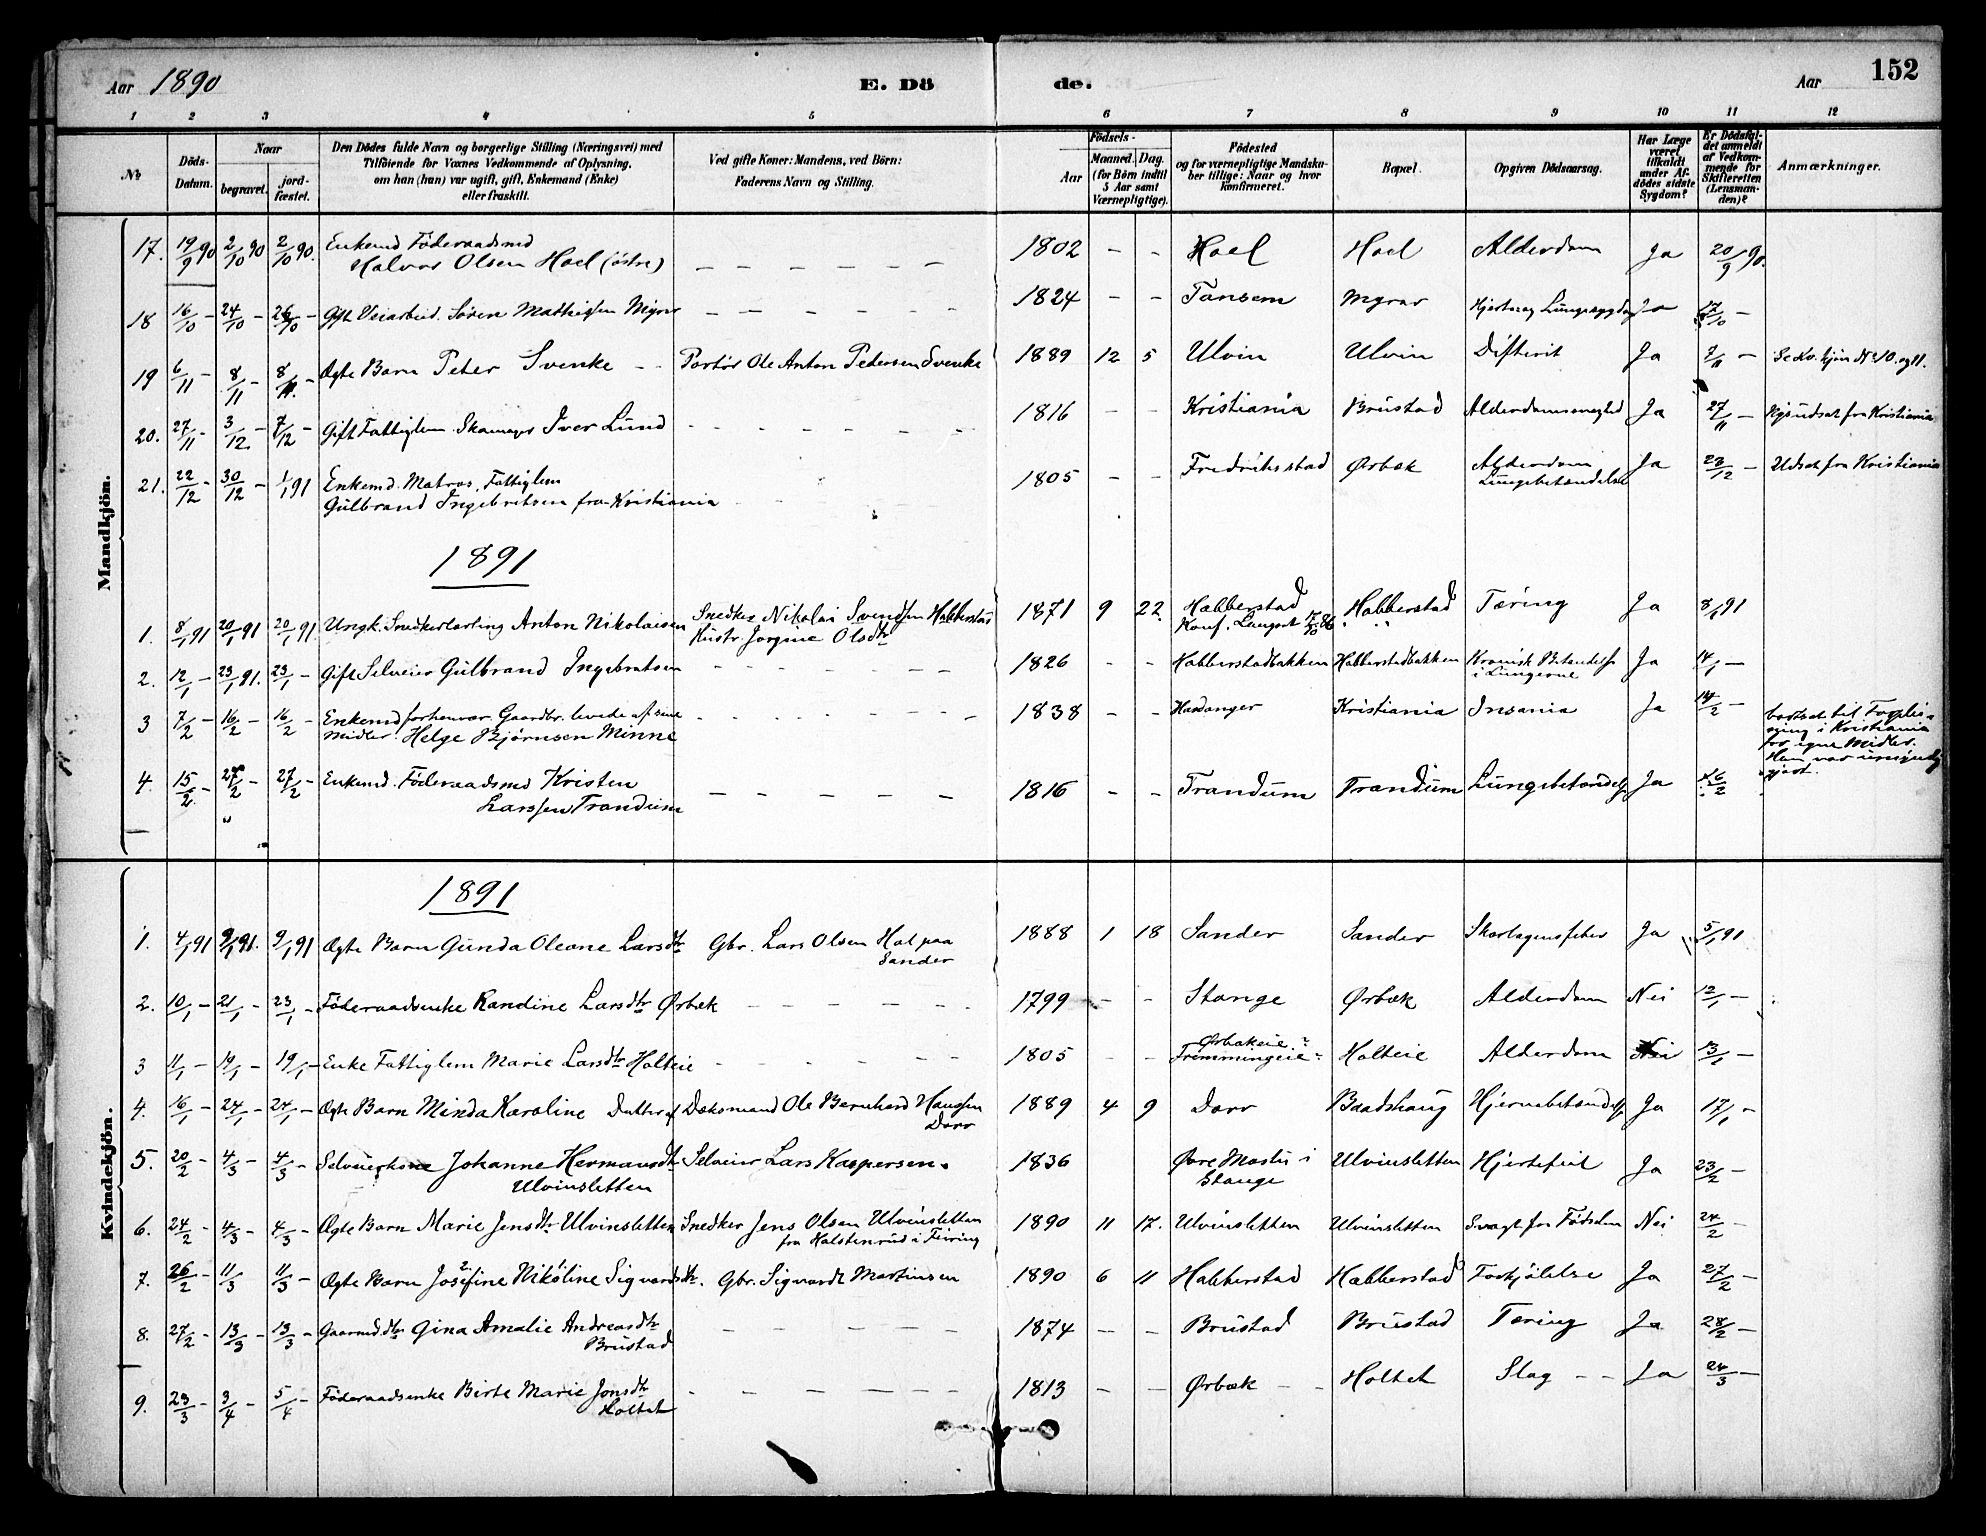 Aar 1890 E. Dö de. Aar 152
1 2 3 4 5 6 7 8 9 10 11 12
No Döds-Datum. Naar begravet. jord-fæstet. Den Dödes fulde Navn og borgerlige Stilling (Næringsvei) med Tilföiende for Voxnes Vedkommende af Oplysning, om han (hun) var ugift, gift, Enkemand (Enke) eller fraskilt. Ved gifte Koner: Mandens, ved Börn: Faderens Navn og Stilling. Födsels- Aar Maaned. Dag. (for Börn indtil 5 Aar samt Værnepligtige). Födested og for værnepligtige Mandskaber tillige: Naar og hvor konfirmeret. Bopæl. Opgiven Dödsaarsag. Har Læge været tilkaldt under Afdödes sidste Sygdom? Er Dödsfaldet anmeldt af Vedkommende for Skifteretten (Lensmanden)? Anmærkninger.
Mandkjön.
17. 19/9 90 2/10 90 2/10 90. Enkemd Föderaadsmd
Halvor Olsen Hoel (östre) — — — — — 1802 - - Hoel Hoel Alderdom Ja 20/9 90.
18 16/10 - 24/10 - 26/10 - Gift Veiarbeid. Søren Mathissen Myrer - - - - - 1824 - - Tansem Myrer Hjerte og Lungesygdom Ja 17/10 -
19 6/11 - 8/11 - 8/11 - Ægte Barn Peter Svenke - - Portør Ole Anton Pedersen Svenke 1889 12 5 Ulvin Ulvin Difterit Ja 7/11 - Se Kv.kjön No 10 og 11.
20. 27/11 - 3/12. - 7/12 - Gift Fattiglem Skomager Iver Lund - - - - - 1816 - - Kristiania Brustad Alderdomssvaghed Ja 27/11 - udsat fra Kristiania
21. 22/12 - 30/12 - 1/1 91 Enkemd. Matros, Fattiglem
Gulbrand Ingebretsen fra Kristiania - - 1805 - - Fredriksstad Ørbæk Alderdom Lungebetændelse Ja 23/12 - Udsat fra Kristiania
1891
1. 8/1 91 20/1 91 20/1 91 Ungk. Snedkerlærling Anton Nikolaisen Snedker Nikolai Svendsen Habberstad
Hustr. Jorgine Olsdtr 1871 9 22. Habberstad
Konf. Langset 17/10 86 Habberstad Tæring Ja 8/1 91
2. 12/1 - 23/1 91. 23/1 - Gift Selveier Gulbrand Ingebretsen - - - - - 1826 - - Habberstadbakken Habberstadbakken Kronisk Betændelse
i Lungerne Ja 14/1 -
3 7/2 - 16/2 - 16/2 - Enkemd forhenvær. Gaardbr. levede af sine
Midler. Helge Bjørnsen Minne - - - - - 1838 - - Hardanger Kristiania Insania Ja 14/2 - bortsat til Forplei-
ning i Kristiania
for egne Midler.
Han var umyndig-
gjort.
4. 15/2. - 27/2 - 27/2 - Enkemd. Föderaadsmd Kristen
Larssen Trandum — — — — — 1816 - - Trandum Trandum Lungebetændelse Ja 16/2
Kvindekjön.
1891
1. 4/1 91 9/1 91. 9/1 91 Ægte Barn Gunda Oleane Larsdtr Gbr. Lars Olsen Hol paa
Sander 1888 1 18 Sander Sander Skarlagensfeber Ja 5/1 91
2. 10/1 - 21/1 - 23/1 - Föderaadsenke Randine Larsdtr Ørbæk - - - - - 1799 - - Stange Ørbæk Alderdom Nei 12/1 -
3 11/1 - 19/1 - 19/1 - Enke Fattiglem Marie Larsdtr Holteie - - - - 1805 - - Ørbækeie
Tremmingeie Holteie Alderdom Nei 13/1 -
4. 16/1 - 24/1 - 24/1 - Ægte Barn Minda Karoline Datter af Dæksmand Ole Bernhard Hanssen
Dorr 1889 4 9 Dorr Baadshaug Hjernebetændelse Ja 17/1 -
5. 20/2 - 4/3 - 4/3 - Selveierkone Johanne Hermansdtr
Ulvinsletten Selveier Lars Kaspersen. 1836 Øvre i
Stange Ulvinsletten Hjertefeil Ja 23/2 -
6. 24/2 - 4/3 - 4/3 - Ægte Barn Marie Jensdtr Ulvinsletten Snedker Jens Olsen Ulvinsletten
fra Halstenrud i Feiring 1890 11 17. Ulvinsletten Ulvinsletten Svagt fra Födselen Nei 24/2 -
7. 26/2 - 11/3 11/3 - Ægte Barn Josefine Nikoline Sigvardsdtr. Gbr. Sigvardt Martinsen 1890 6 11 Habberstad Habberstad Forkjölelse Ja 27/2 -
8. 27/2 - 13/3 - 13/3 - Gaarmd.dtr Gina Amalie Andreasdtr
Brustad — — — — — 1874 - - Brustad Brustad Tæring Ja 28/2 -
9. 23/3 - 3/4 - 5/4 - Föderaadsenke Birte Marie Jonsdtr
Holtet - - - - - 1813 - - Ørbæk - - Holtet Slag - - Ja 24/3 -